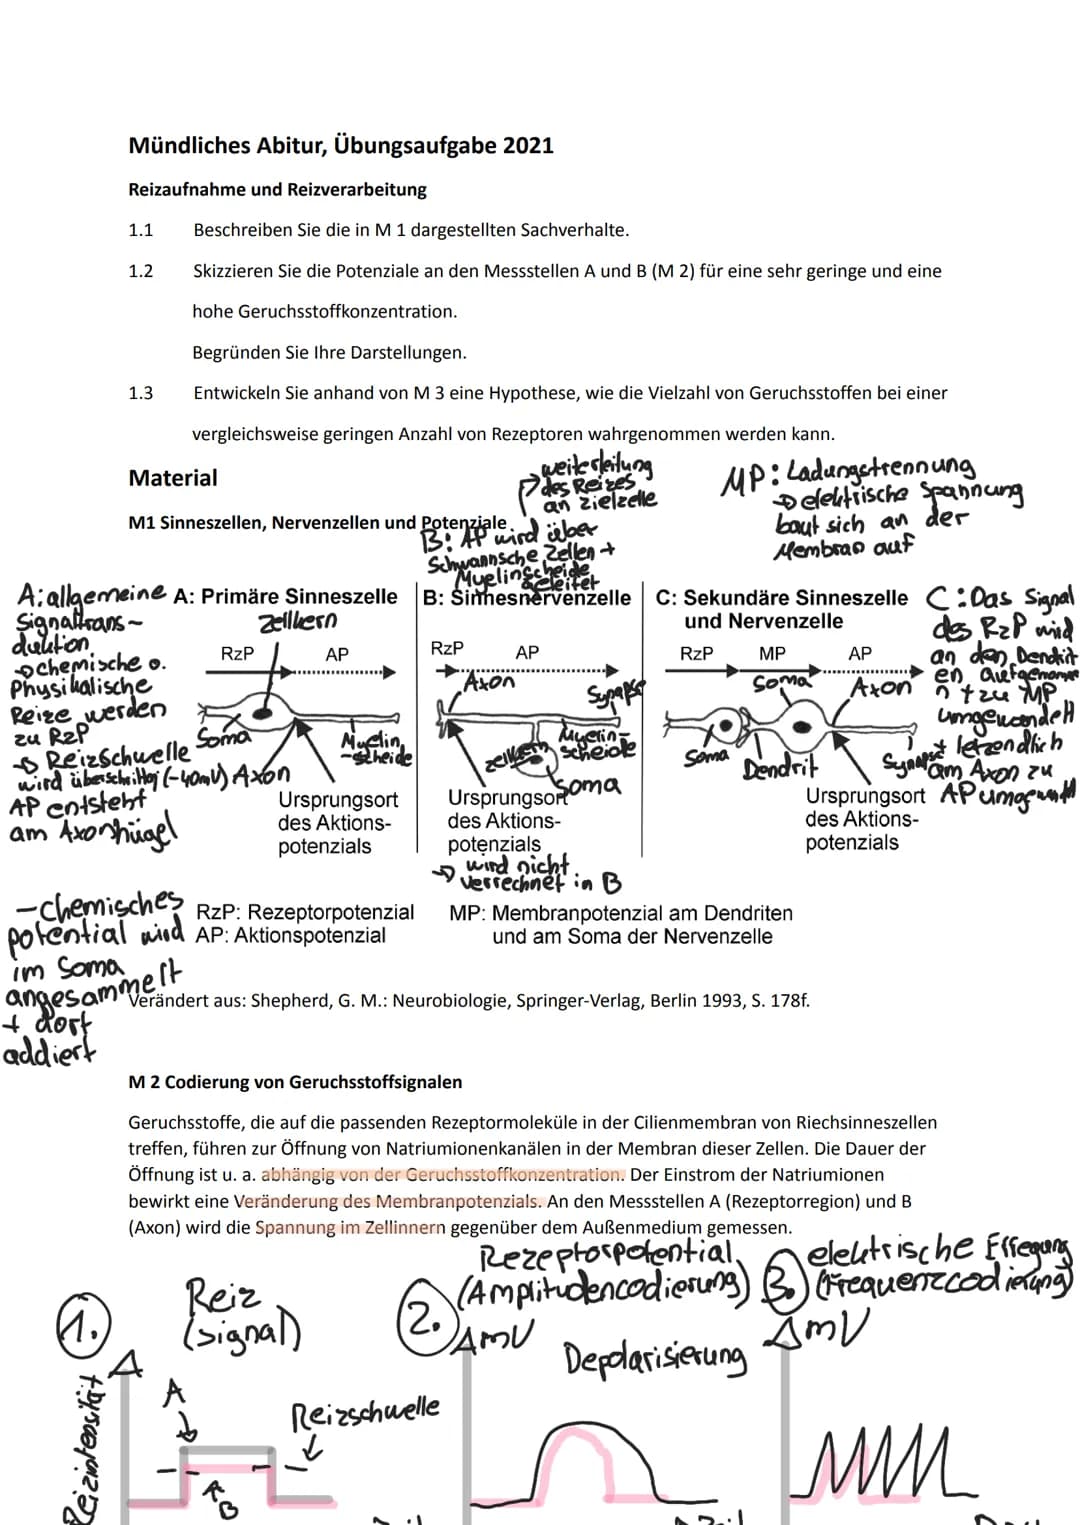 Mündliches Abitur, Übungsaufgabe 2021
Reizaufnahme und Reizverarbeitung
1.1 Beschreiben Sie die in M 1 dargestellten Sachverhalte.
1.2 Skizzieren Sie die Potenziale an den Messstellen A und B (M 2) für eine sehr geringe und eine
hohe Geruchsstoffkonzentration.
Begründen Sie Ihre Darstellungen.
1.3 Entwickeln Sie anhand von M 3 eine Hypothese, wie die Vielzahl von Geruchsstoffen bei einer
vergleichsweise geringen Anzahl von Rezeptoren wahrgenommen werden kann.
Material
weiterleitung
des Reizes
an zielzelle
MP: Ladungstrennung
→ elektrische Spannung
baut sich an der
Membran auf
M1 Sinneszellen, Nervenzellen und Potenziale
B: AP wird über
Schwannsche Zellen +
Myelinscheide
geleitet
A: allgemeine
Signaltrans-
duktion
→ chemische o.
Physikalische
Reize werden
zu RzP
→ Reizschwelle
wird überschritten (-40mV)
AP entsteht
am Axonhügel
A: Primäre Sinneszelle
Zellkern
RzP AP
Soma
Myelin
-scheide
Axon
Ursprungsort
des Aktions-
potenzials
B: Sinnesnervenzelle
RzP AP
Axon
Synapse
Zellkern
Myelin-
scheide
Soma
Ursprungsort
des Aktions-
potenzials
→ wird nicht
verrechnet in B
C: Sekundäre Sinneszelle
und Nervenzelle
RzP MP AP
Soma
Axon
Soma
Dendrit
Synapse
Ursprungsort
des Aktions-
potenzials
C: Das Signal
des RzP wird
an den Dendrit
en aufgenomme
n + zu MP
umgewandelt
+ letzendlich
am Axon zu
AP umgewandt
- chemisches
potential wird
im Soma
angesammelt
+ dort
addiert
RzP: Rezeptorpotenzial
AP: Aktionspotenzial
MP: Membranpotenzial am Dendriten
und am Soma der Nervenzelle
Verändert aus: Shepherd, G. M.: Neurobiologie, Springer-Verlag, Berlin 1993, S. 178f.
M 2 Codierung von Geruchsstoffsignalen
Geruchsstoffe, die auf die passenden Rezeptormoleküle in der Cilienmembran von Riechsinneszellen
treffen, führen zur Öffnung von Natriumionenkanälen in der Membran dieser Zellen. Die Dauer der
Öffnung ist u. a. abhängig von der Geruchsstoffkonzentration. Der Einstrom der Natriumionen
bewirkt eine Veränderung des Membranpotenzials. An den Messstellen A (Rezeptorregion) und B
(Axon) wird die Spannung im Zellinnern gegenüber dem Außenmedium gemessen.
1.
Reiz
(signal)
Reizintensität
A
Reizschwelle
B
2.
Rezeptorpotential
(Amplitudencodierung)
mV
Depolarisierung
3.
elektrische Erregung
(Frequenzcodierung)
mV